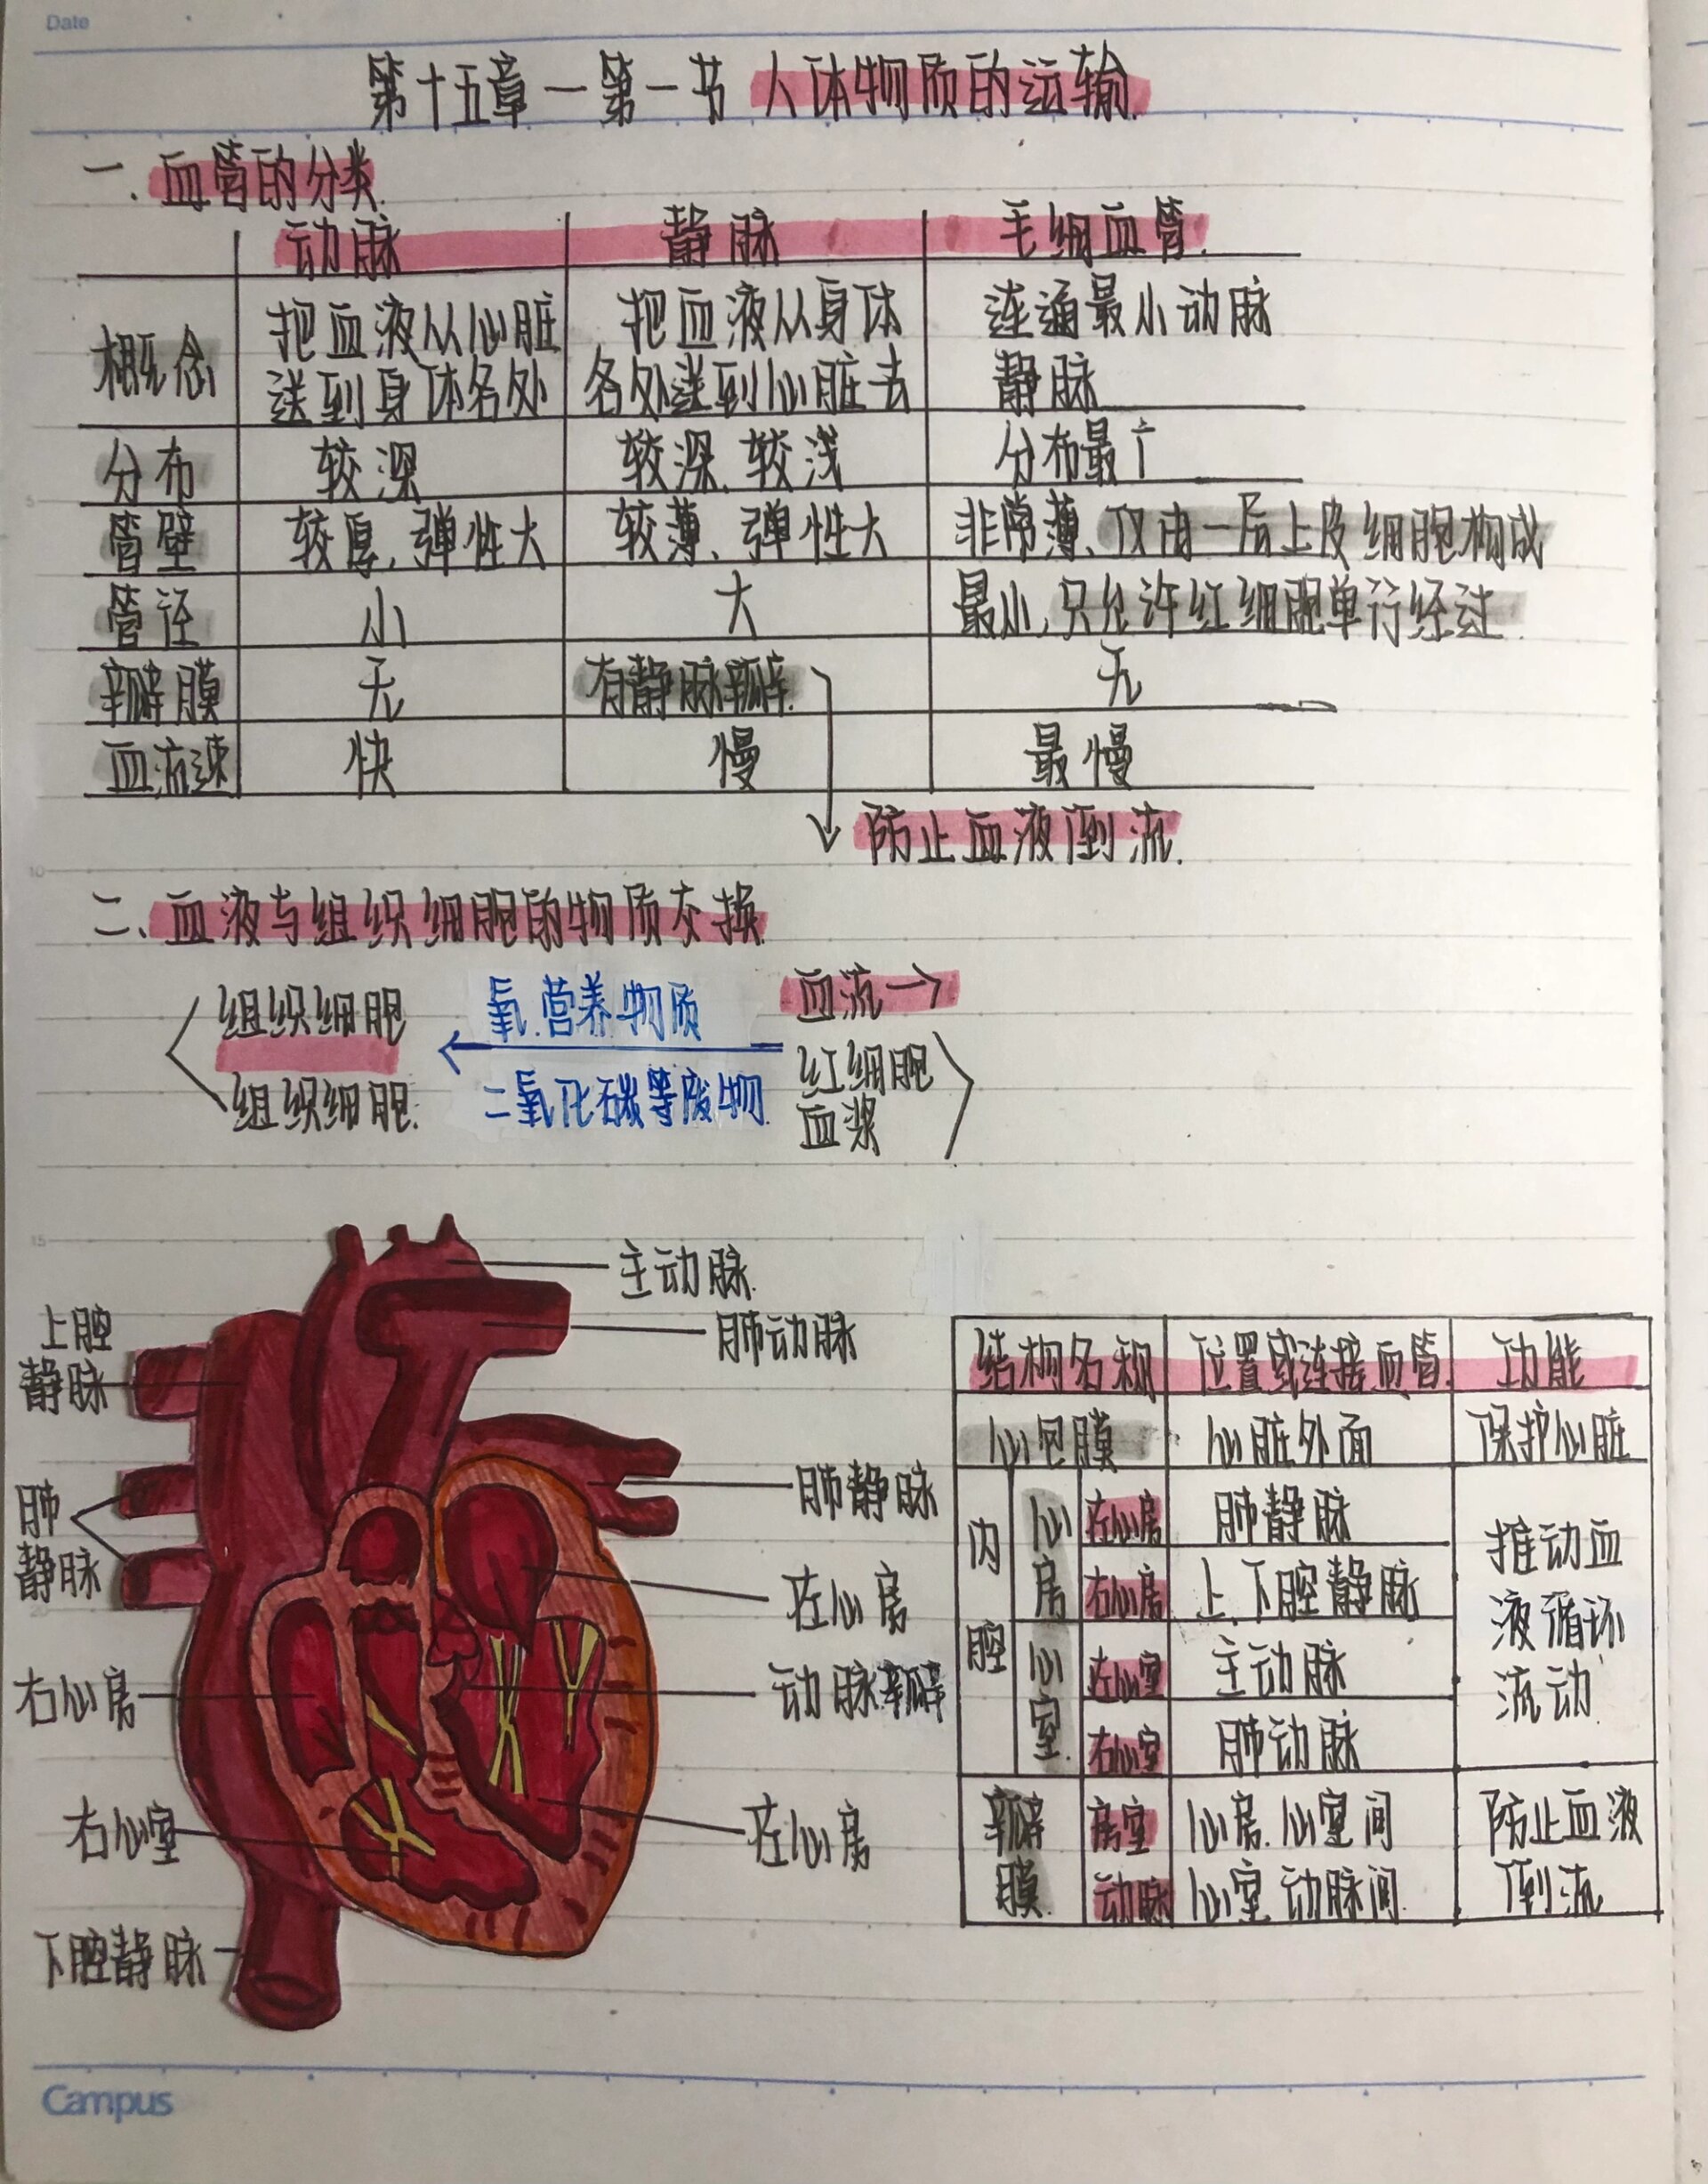 Date
第十五章一第一节 人体物质的运输.
一.血管的分类.
动脉 静脉 毛细血管.
概念 把血液从心脏 把血液从身体 连通最小动脉
送到身体各处 各处送到心脏去 静脉
分布 较深 较深.较浅 分布最广
管壁 较厚,弹性大 较薄、弹性大 非常薄、仅由一层上皮细胞构成
管径 小 大 最小,只允许红细胞单行经过.
瓣膜 无 有静脉瓣. 无
血流速 快 慢 最慢
防止血液倒流.
二、血液与组织细胞的物质交换.
组织细胞 氧.营养物质 血流→
组织细胞. 二氧化碳等废物. 红细胞
血浆
5
10
15
20
主动脉.
肺动脉
上腔
静脉
肺静脉
肺
静脉
左心房
右心房
动脉瓣
右心室
左心房
下腔静脉
结构名称 位置或连接血管. 功能
心包膜 心脏外面 保护心脏
内腔 心房 左心房 肺静脉 推动血
右心房 上、下腔静脉 液循环
心室. 左心室 主动脉 流动.
右心室 肺动脉
瓣膜. 房室 心房.心室间 防止血液
动脉 心室.动脉间. 倒流
Campus